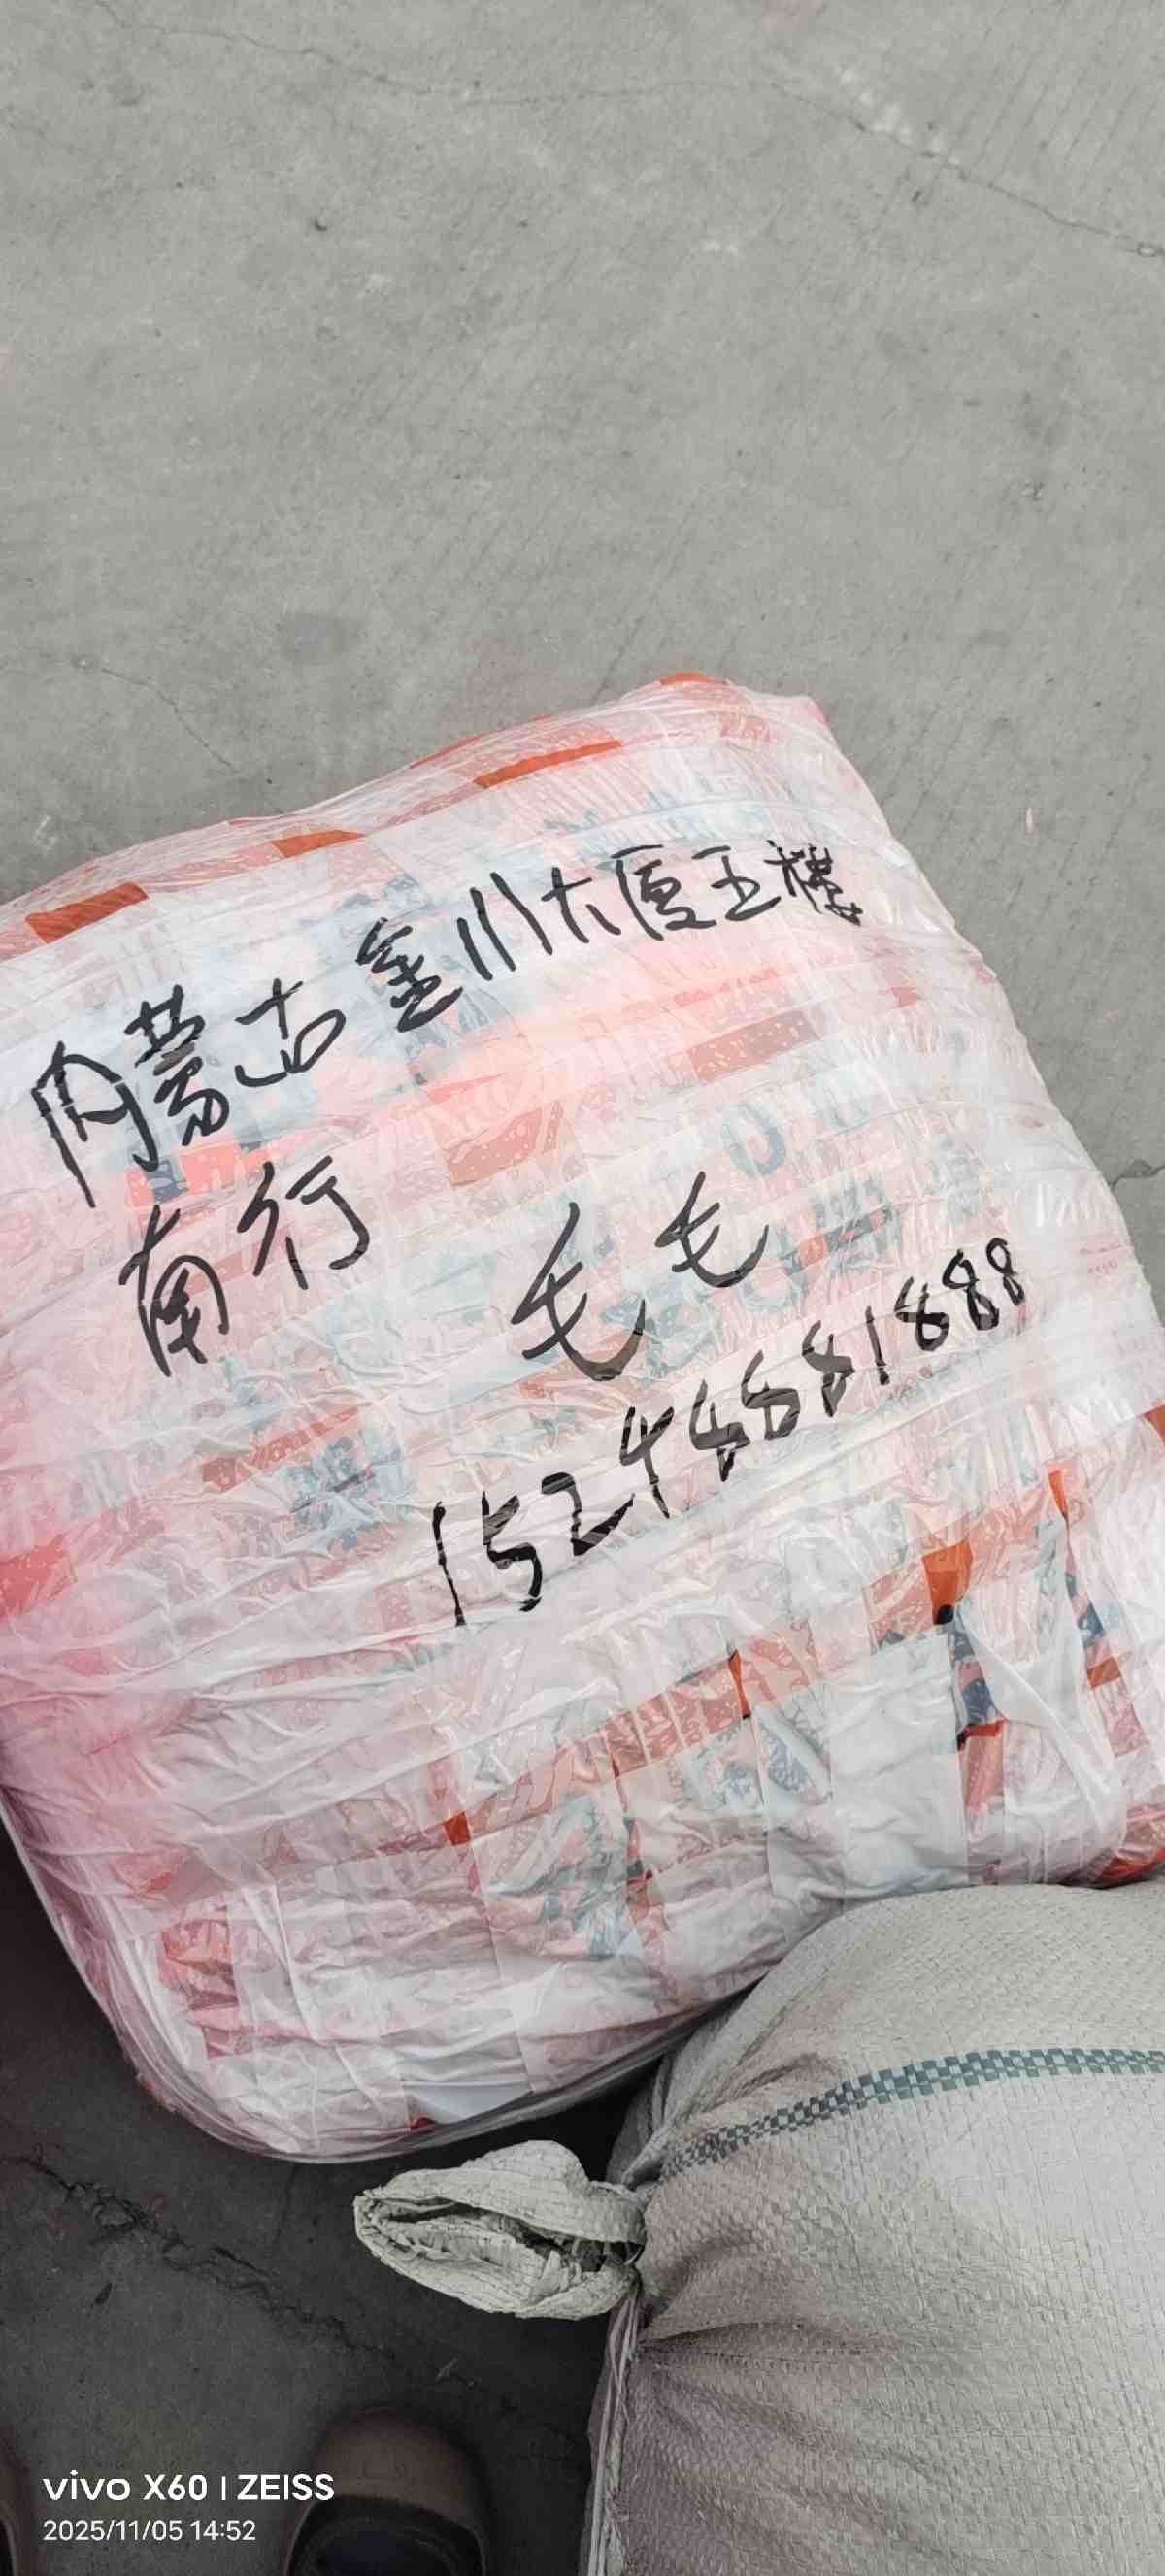 内蒙古金川大厦五楼
南行 毛毛
15248881888
vivo X60 | ZEISS
2025/11/05 14:52